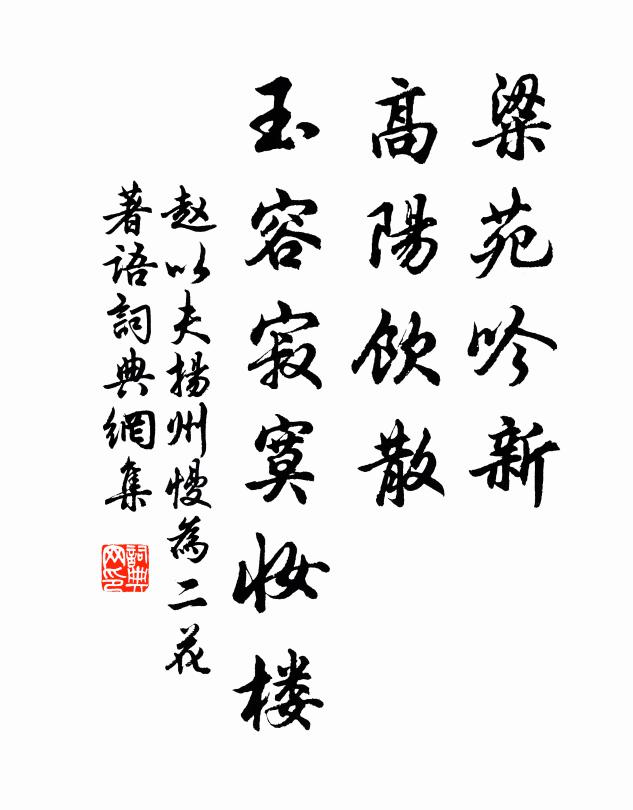 梁苑吟新
高陽飲散
玉容寂寞妆楼
赵以夫揚州慢為二花
著語詞典網集
詞典
网印